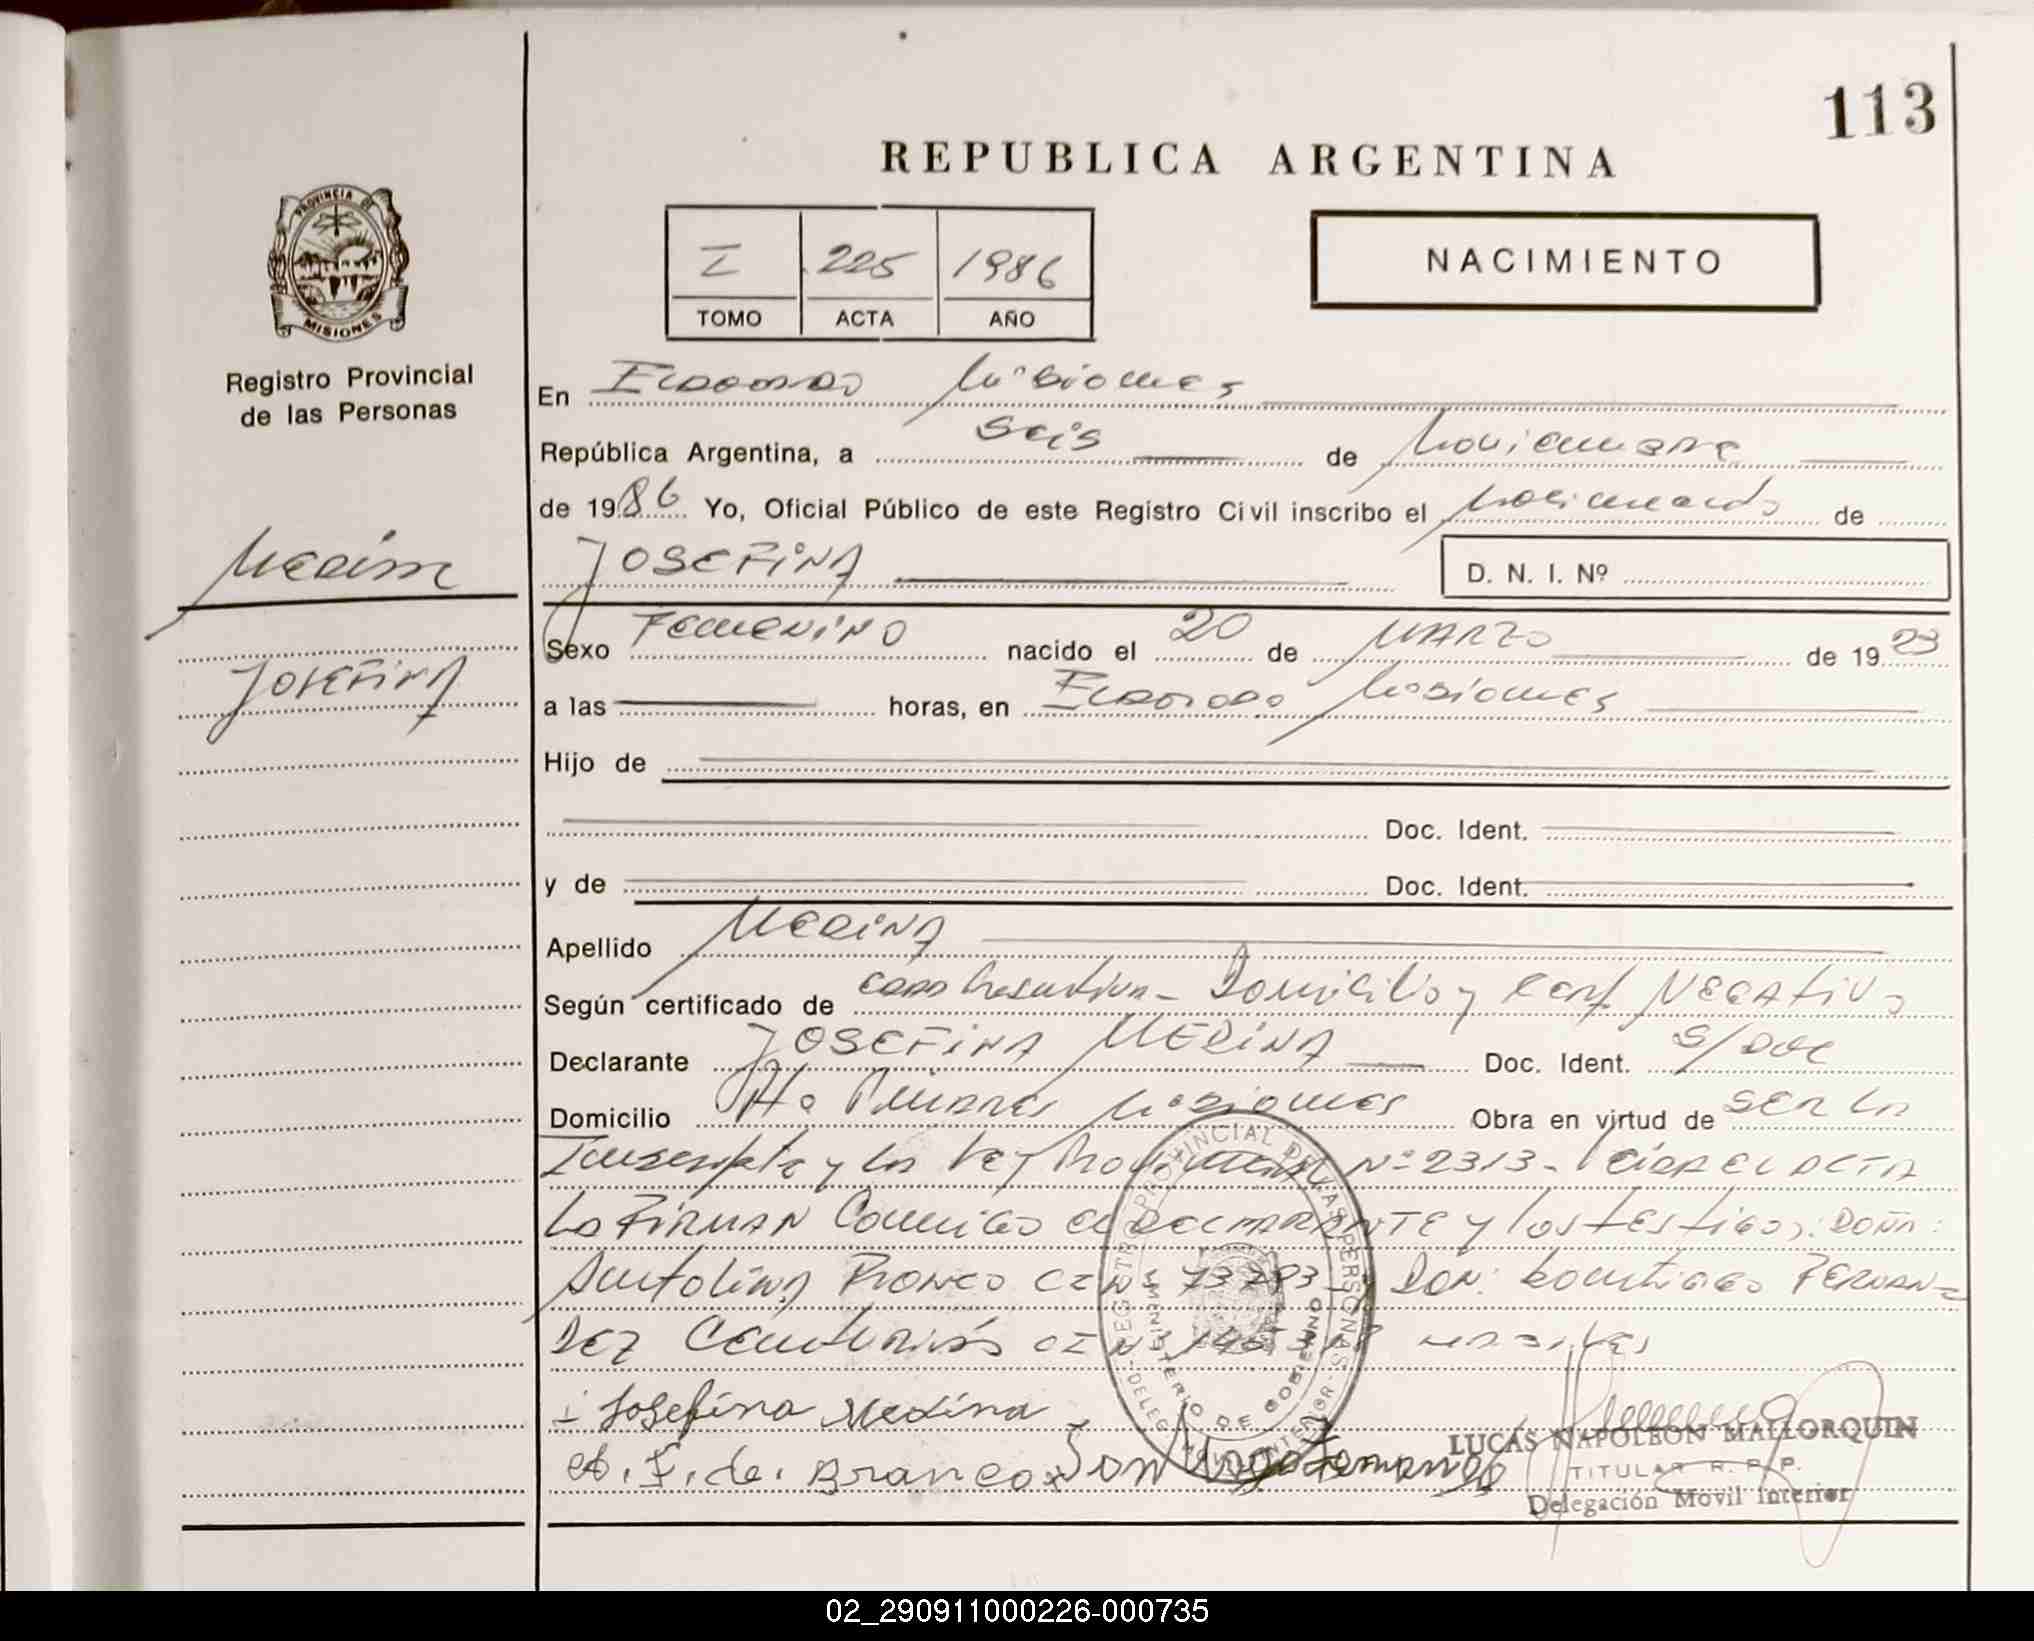 113
REPUBLICA ARGENTINA
PROVINCIA DE
MISIONES
Registro Provincial
de las Personas
I 225 1986
TOMO ACTA AÑO
NACIMIENTO
En Eldorado Misiones
República Argentina, a seis de Noviembre
de 1986 Yo, Oficial Público de este Registro Civil inscribo el nacimiento de
Medina
JOSEFINA
D. N. I. Nº
JOSEFINA
Sexo FEMENINO nacido el 20 de MARZO de 1923
a las horas, en Eldorado Misiones
Hijo de
Doc. Ident.
y de Doc. Ident.
Apellido MEDINA
Según certificado de Domicilio y Cert NEGATIVO
Declarante JOSEFINA MEDINA Doc. Ident. S/DOC
Domicilio Pto Pinares Misiones Obra en virtud de SER LA
y la Ley Provincial Nº 2313 - Leida EL ACTA
La FIRMAN Conmigo el DECLARANTE y los testigos: DOÑA:
CI Nº y DON: FERNAN-
DEZ CI Nº
Josefina Medina
A. F. de. Branco
REGISTRO PROVINCIAL DE LAS PERSONAS
MINISTERIO DE GOBIERNO
LUCAS NAPOLEON MALLORQUIN
TITULAR R. P. P.
Delegación Movil Interior
02_290911000226-000735